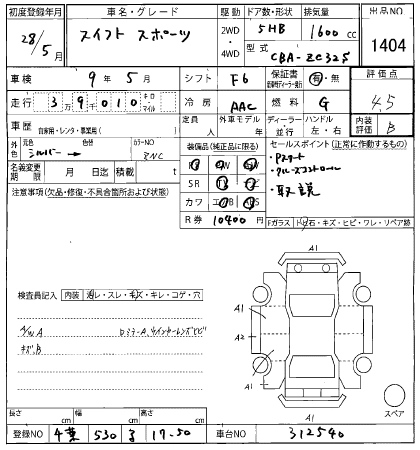 初度登録年月 車名・グレード 駆動 ドア数・形状 排気量 出品NO
28/5月 スイフト スポーツ 2WD 4WD 5HB 1600cc 1404
型式 CBA-ZC32S
車検 9年5月 シフト F6 保証書 有・無 評価点
走行 39,010 キロ・マイル 冷房 AAC 燃料 G 4.5
車歴 自家用・レンタ・事業用( ) 定員 人 外車モデル 年 ディーラー・並行 ハンドル 左・右 内装評価 B
外色 元色 シルバー → 色替 カラーNO ZNC 装備品(純正品に限る) セールスポイント(正常に作動するもの)
名義変更期限 月 日迄 積載 t ・Pスタート
SR ・クルーズコントロール
注意事項(欠品・修復・不具合箇所および状態) カワ ・取説
R券 10400 円 Fガラス 飛石・キズ・ヒビ・ワレ・リペア跡
検査員記入 内装 汚レ・スレ・キズ・キレ・コゲ・穴
A/W A
キズ、B
ドミラーA、ウインカーレンズヒビ
A1
A1
A2
A1
A1
A1
スペア
長さ cm 幅 cm 高さ cm
登録NO 千葉 530 す 17-50 車台NO 312540